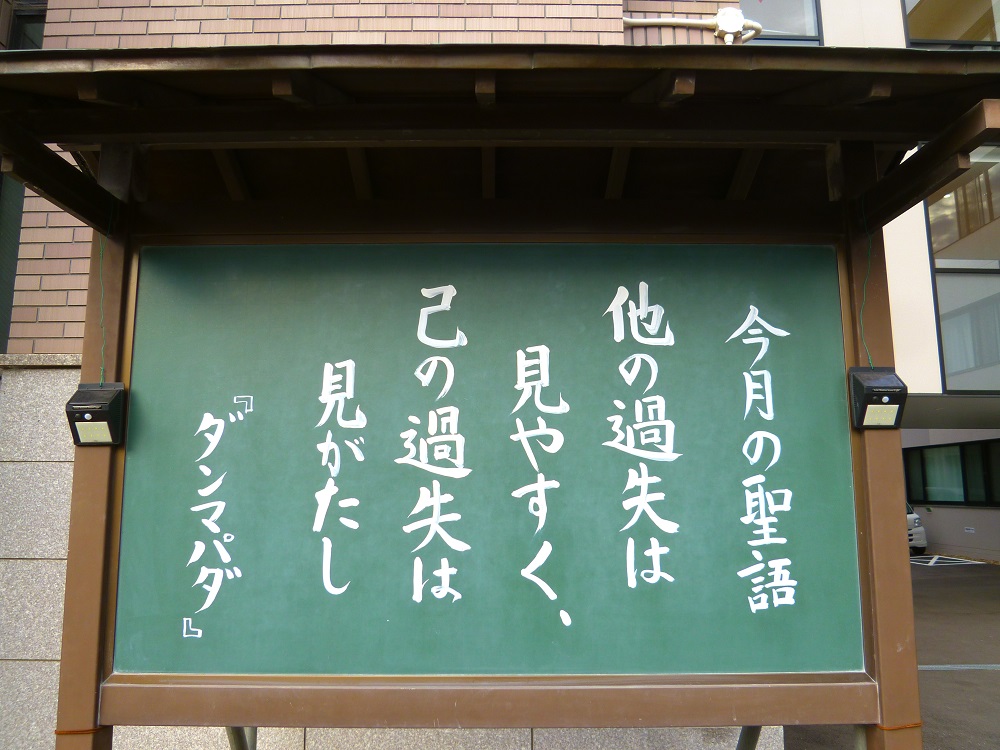 今月の聖語
他の過失は
見やすく、
己の過失は
見がたし
『ダンマパダ』